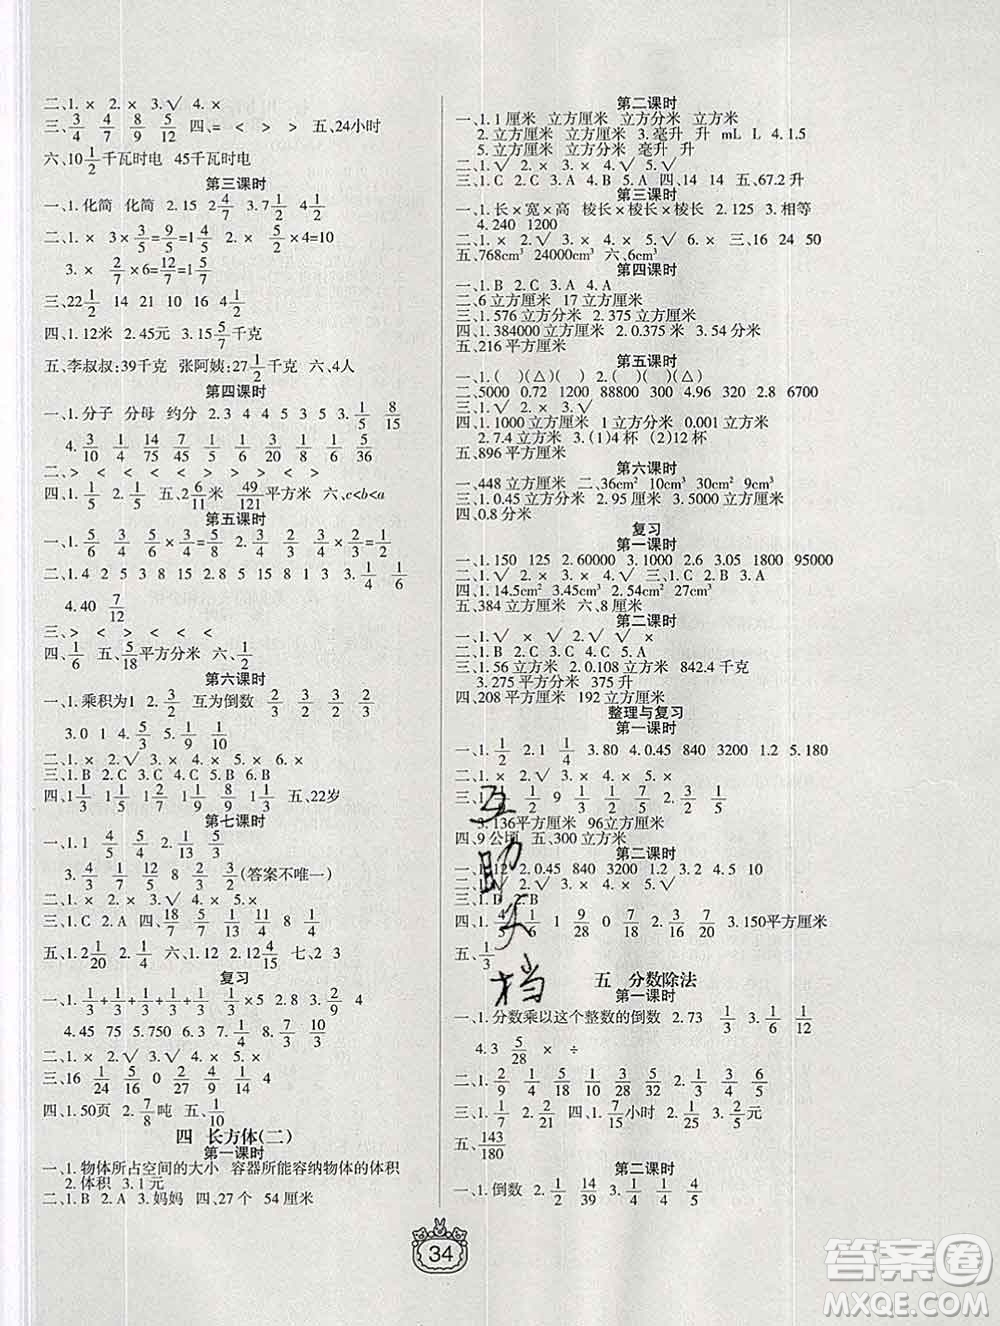 二、1. × 2. × 3. √ 4. ×
三、3/4 4/7 8/9 5/12 四、= < > > 五、24小时
六、10 1/2千瓦时电 45千瓦时电
第三课时
一、1. 化简 化简 2. 15 2 4/7 3. 7 1/2
二、1. × 3×3/5=9/5=1 4/5 2. × 3/7×2=6/7
3. × 2/7×6=12/7=1 5/7
三、22 1/2 14 21 10 4 1/2
四、1. 12米 2. 45元 3. 15 5/9千克
五、李叔叔:39千克 张阿姨:27 1/2千克 六、4人
第四课时
一、1. 分子 分母 约分 2. 3 4 4 3 3. 1/5 8/15
4. 3/10 1/4 7/14 7/45 1/5 1/6 3/4 3/4 1/16
二、> < < < < > > <
四、1. 1/5 2. 1/5 五、2 6/11米 49/121平方米 六、c<b<a
第五课时
一、1. 5/6 3/4 5/6×3/4=5/8 2. 3/4 2/3 3/4×2/3=1/2
二、1. 4 2 5 8 2. 1 2 3 7 3. 1/4 1/6
4. 40 7/12
三、> < < < <
四、1/6 五、5/18平方分米 六、1/2
第六课时
一、1. 乘积为1 2. 3/2 互为倒数 2/3 3/2 2/3 3/2
3. 0 1 4. 3/2 5. 1/9 1/10
二、1. × 2. × 3. √ 4. √ 5. ×
三、1. B 2. C 3. A 4. C 5. B 6. C
四、1 1/8 1 1/2 1 1/9 8/9 1/11 五、22岁
第七课时
一、1. 1 4/5 4/5 2. 1/4 1/9
3. 4/15 1/2 15/2 5/8 8/5 (答案不唯一)
二、1. × 2. × 3. √ 4. × 5. ×
三、1. C 2. A 四、18/7 5/7 1/9 1/2 3/4
五、1. 1/20 2. 1/4 六、1. 1/10 2. 4/15 七、2 3
复习
一、1. 1/3+1/3+1/3+1/3+1/3 1/3×5 2. 8 3. 2/9 4
4. 45 75 5. 750 6. 3 5/2 7. 8/7 3/10 10/3
二、1. × 2. √ 3. √ 4. √ 5. ×
三、16 1/24 12/16 0 2/9 4/7 1/4 4
四、1. 50页 2. 7/8吨 五、1/10
四 长方体(二)
第一课时
一、1. 物体所占空间的大小 容器所能容纳物体的体积
2. 体积 3. 1 元
二、1. B 2. A 3. 妈妈 四、27个 54厘米
第二课时
一、1. 1厘米 立方厘米 立方分米 立方米
2. 立方厘米 立方厘米 3. 毫升 升 mL L 4. 1.5
5. 立方厘米 立方分米 毫升 升
二、1. √ 2. × 3. √ 4. √ 5. ×
三、1. C 2. C 3. A 4. B 5. A 四、14 14 五、67.2升
第三课时
一、1. 长×宽×高 棱长×棱长×棱长 2. 125 3. 相等
4. 240 1200
二、1. × 2. √ 3. √ 4. × 5. × 6. × 三、16 24 50
五、768cm³ 24000cm³ 六、6cm³
第四课时
一、1. B 2. C 3. A 4. A
二、6立方厘米 17立方厘米
三、1. 576立方分米 2. 375立方厘米
四、1. 384000立方厘米 2. 0.375米 3. 54分米
五、216平方厘米
第五课时
一、1. ( )(△) 2. ( )( )(△)
二、5000 0.72 1200 88800 300 4.96 320 2.8 6700
三、1. √ 2. × 3. √
四、1. 1000立方厘米 1立方分米 0.001立方米
2. 7.4立方分米 3. (1)4杯 (2)12杯
五、896平方厘米
第六课时
一、448立方厘米 二、36cm² 10cm³ 30cm³ 9cm³
三、1. 0.45立方分米 2. 95厘米 3. 5000立方厘米
四、0.8分米
复习
第一课时
一、1. 150 125 2. 60000 3. 1000 2.6 3.05 1800 95000
二、1. √ 2. × 3. × 4. √ 三、1. C 2. C 3. A
四、1. 14.5cm² 3.45cm³ 2. 54cm² 27cm³
五、384立方厘米 六、8厘米
第二课时
一、1. √ × √ × √ √ ×
二、1. A 2. C 3. B 4. C 5. A
三、1. 56立方米 2. 0.108立方米 842.4千克
3. 275立方分米 375升
四、208平方厘米 192立方厘米
整理与复习
第一课时
一、1. 1/2 2. 1 1/4 3. 80 4. 0.45 840 3200 1.2 5. 180
二、1. × 2. √ 3. × 4. √ 5. ×
三、1/2 9 3/20 2. 2/3 1/5
3. 136平方厘米 96立方厘米
四、9公顷 五、300立方米
第二课时
一、1. 12 2. 0.45 840 3. 2 5 4. 5 10
二、1. √ 2. √ 3. × 4. ×
三、1. D B
四、1. 1/6 1 9/28 0 7/18 2. 1/5 3. 150平方厘米
五、1/3
五 分数除法
第一课时
一、1. 分数乘以这个整数的倒数 2. 73 1/3 3. 1/6 1/12
4. 3 5/28 × ÷
二、1. 2/9 1/4 5/28 1/10 3/5 5/34 2. 4/7 2/3
三、1. 1/7 2. 2/21 四、1. 7/15小时 2. 3/2元
五、143/180
第二课时
一、1. 倒数 2. 1/2 14/39 3. 1/4 1/4 5/9
34
互助文档
答案圈
MXQE.COM